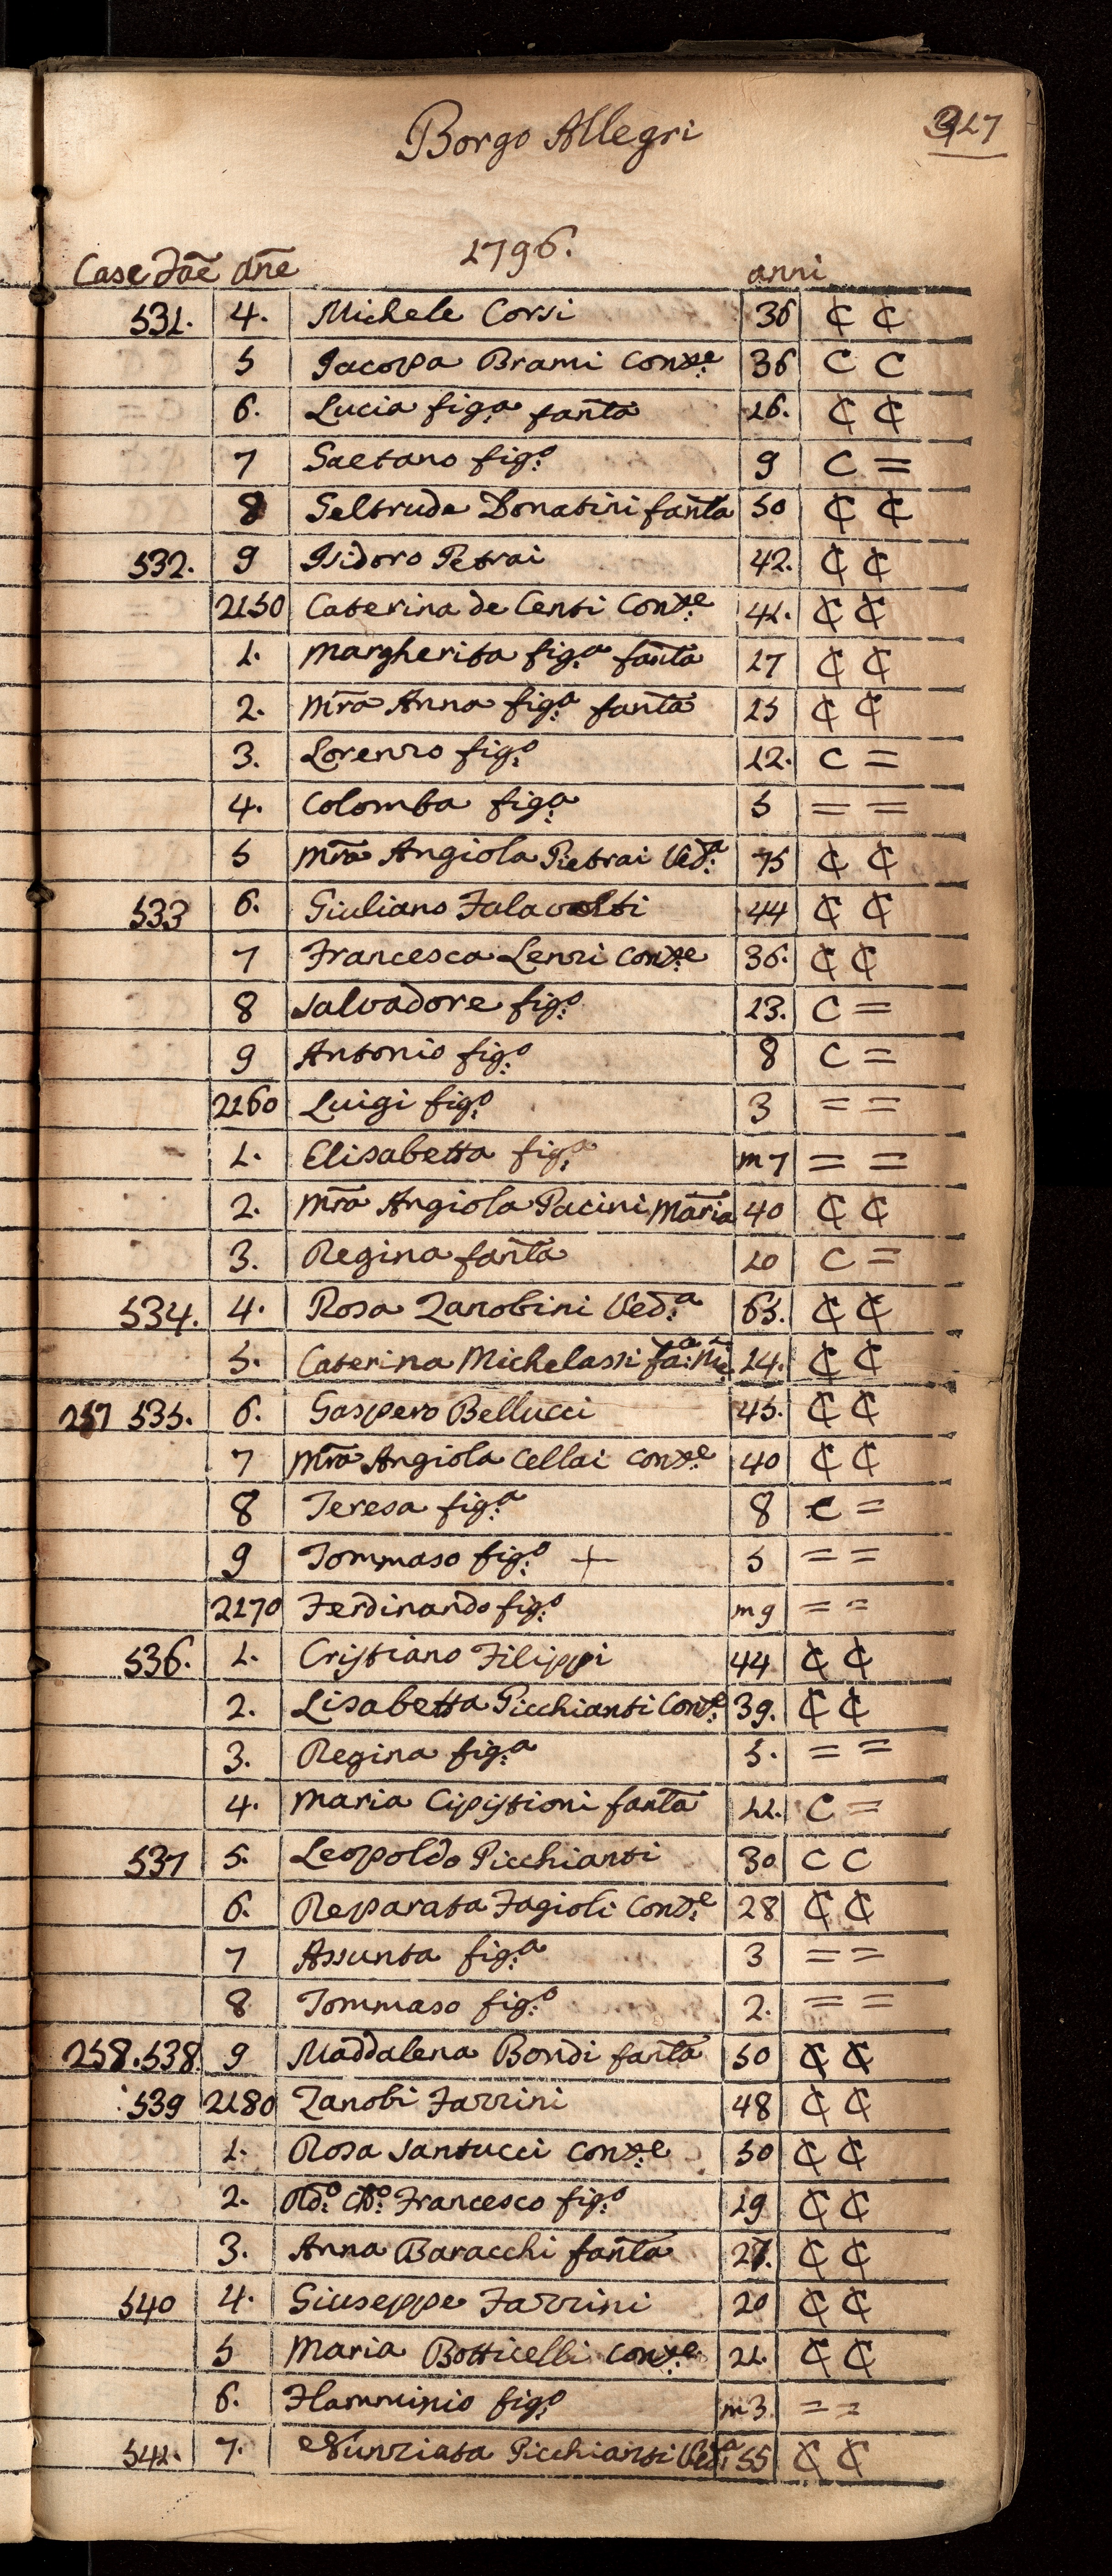 Borgo Allegri
327
1796.
Case Fãe Ãne anni
531. 4. Michele Corsi 36 ₵ ₵
5 Jacopa Brami Cons:e 36 C C
6. Lucia fig:a fan̄ta 16. ₵ ₵
7 Gaetano fig:o 9 C =
8 Geltrude Donatini fan̄ta 50 ₵ ₵
532. 9 Isidoro Petrai 42. ₵ ₵
2150 Caterina de Centi Cons:e 41. ₵ ₵
1. Margherita fig:a fan̄ta 17 ₵ ₵
2. Mr̃a Anna fig:a fan̄ta 15 ₵ ₵
3. Lorenzo fig:o 12. C =
4. Colomba fig:a 5 = =
5 Mr̃a Angiola Pietrai Ved:a 75 ₵ ₵
533 6. Giuliano Falavolti 44 ₵ ₵
7 Francesca Lenzi Cons:e 36. ₵ ₵
8 Salvadore fig:o 13. C =
9 Antonio fig:o 8 C =
2160 Luigi fig:o 3 = =
1. Elisabetta fig:a m 7 = =
2. Mr̃a Angiola Pacini Mar̃ia 40 ₵ ₵
3. Regina fan̄ta 10 C =
534. 4. Rosa Zanobini Ved:a 65. ₵ ₵
5. Caterina Michelassi 24. ₵ ₵
257 535. 6. Gaspero Bellucci 45. ₵ ₵
7 Mr̃a Angiola Cellai Cons:e 40 ₵ ₵
8 Teresa fig:a 8 C =
9 Tommaso fig:o + 5 = =
2170 Ferdinando fig:o m 9 = =
536. 1. Cristiano Filippi 44 ₵ ₵
2. Lisabetta Picchianti Cons:e 39. ₵ ₵
3. Regina fig:a 5. = =
4. Maria Cipistioni fan̄ta 11. C =
537 5. Leopoldo Picchianti 30 C C
6. Reparata Fagioli Cons:e 28 ₵ ₵
7 Assunta fig:a 3 = =
8 Tommaso fig:o 2. = =
258. 538. 9 Maddalena Bondi fan̄ta 50 ₵ ₵
539 2180 Zanobi Farrini 48 ₵ ₵
1. Rosa Santucci Cons:e 50 ₵ ₵
2. Rd:o Ch:o Francesco fig:o 19 ₵ ₵
3. Anna Baracchi fan̄ta 27. ₵ ₵
540 4. Giuseppe Farrini 20 ₵ ₵
5 Maria Botticelli Cons:e 21. ₵ ₵
6. Flamminio fig:o m 3 = =
541. 7. Nunziata Picchianti Ved:a 55 ₵ ₵